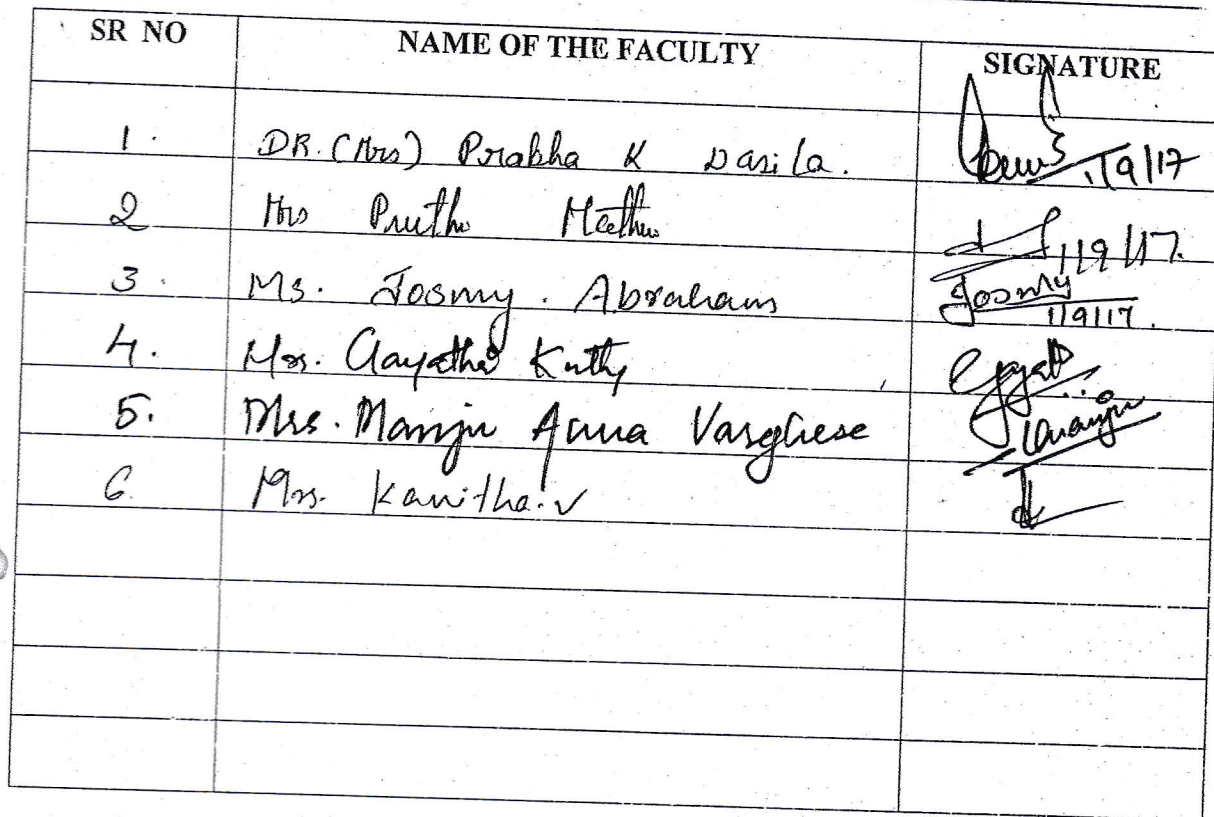 SR NO NAME OF THE FACULTY SIGNATURE
1. DR. (Mrs) Prabha K Dasila. 1/9/17
2 Mrs 1/9/17.
3. Ms. Josmy. Abraham Josmy 1/9/17.
4. Mrs. Gayathri Kutty
5. Mrs. Manju Anna Varghese Manju
6. Mrs. Kanitha.v